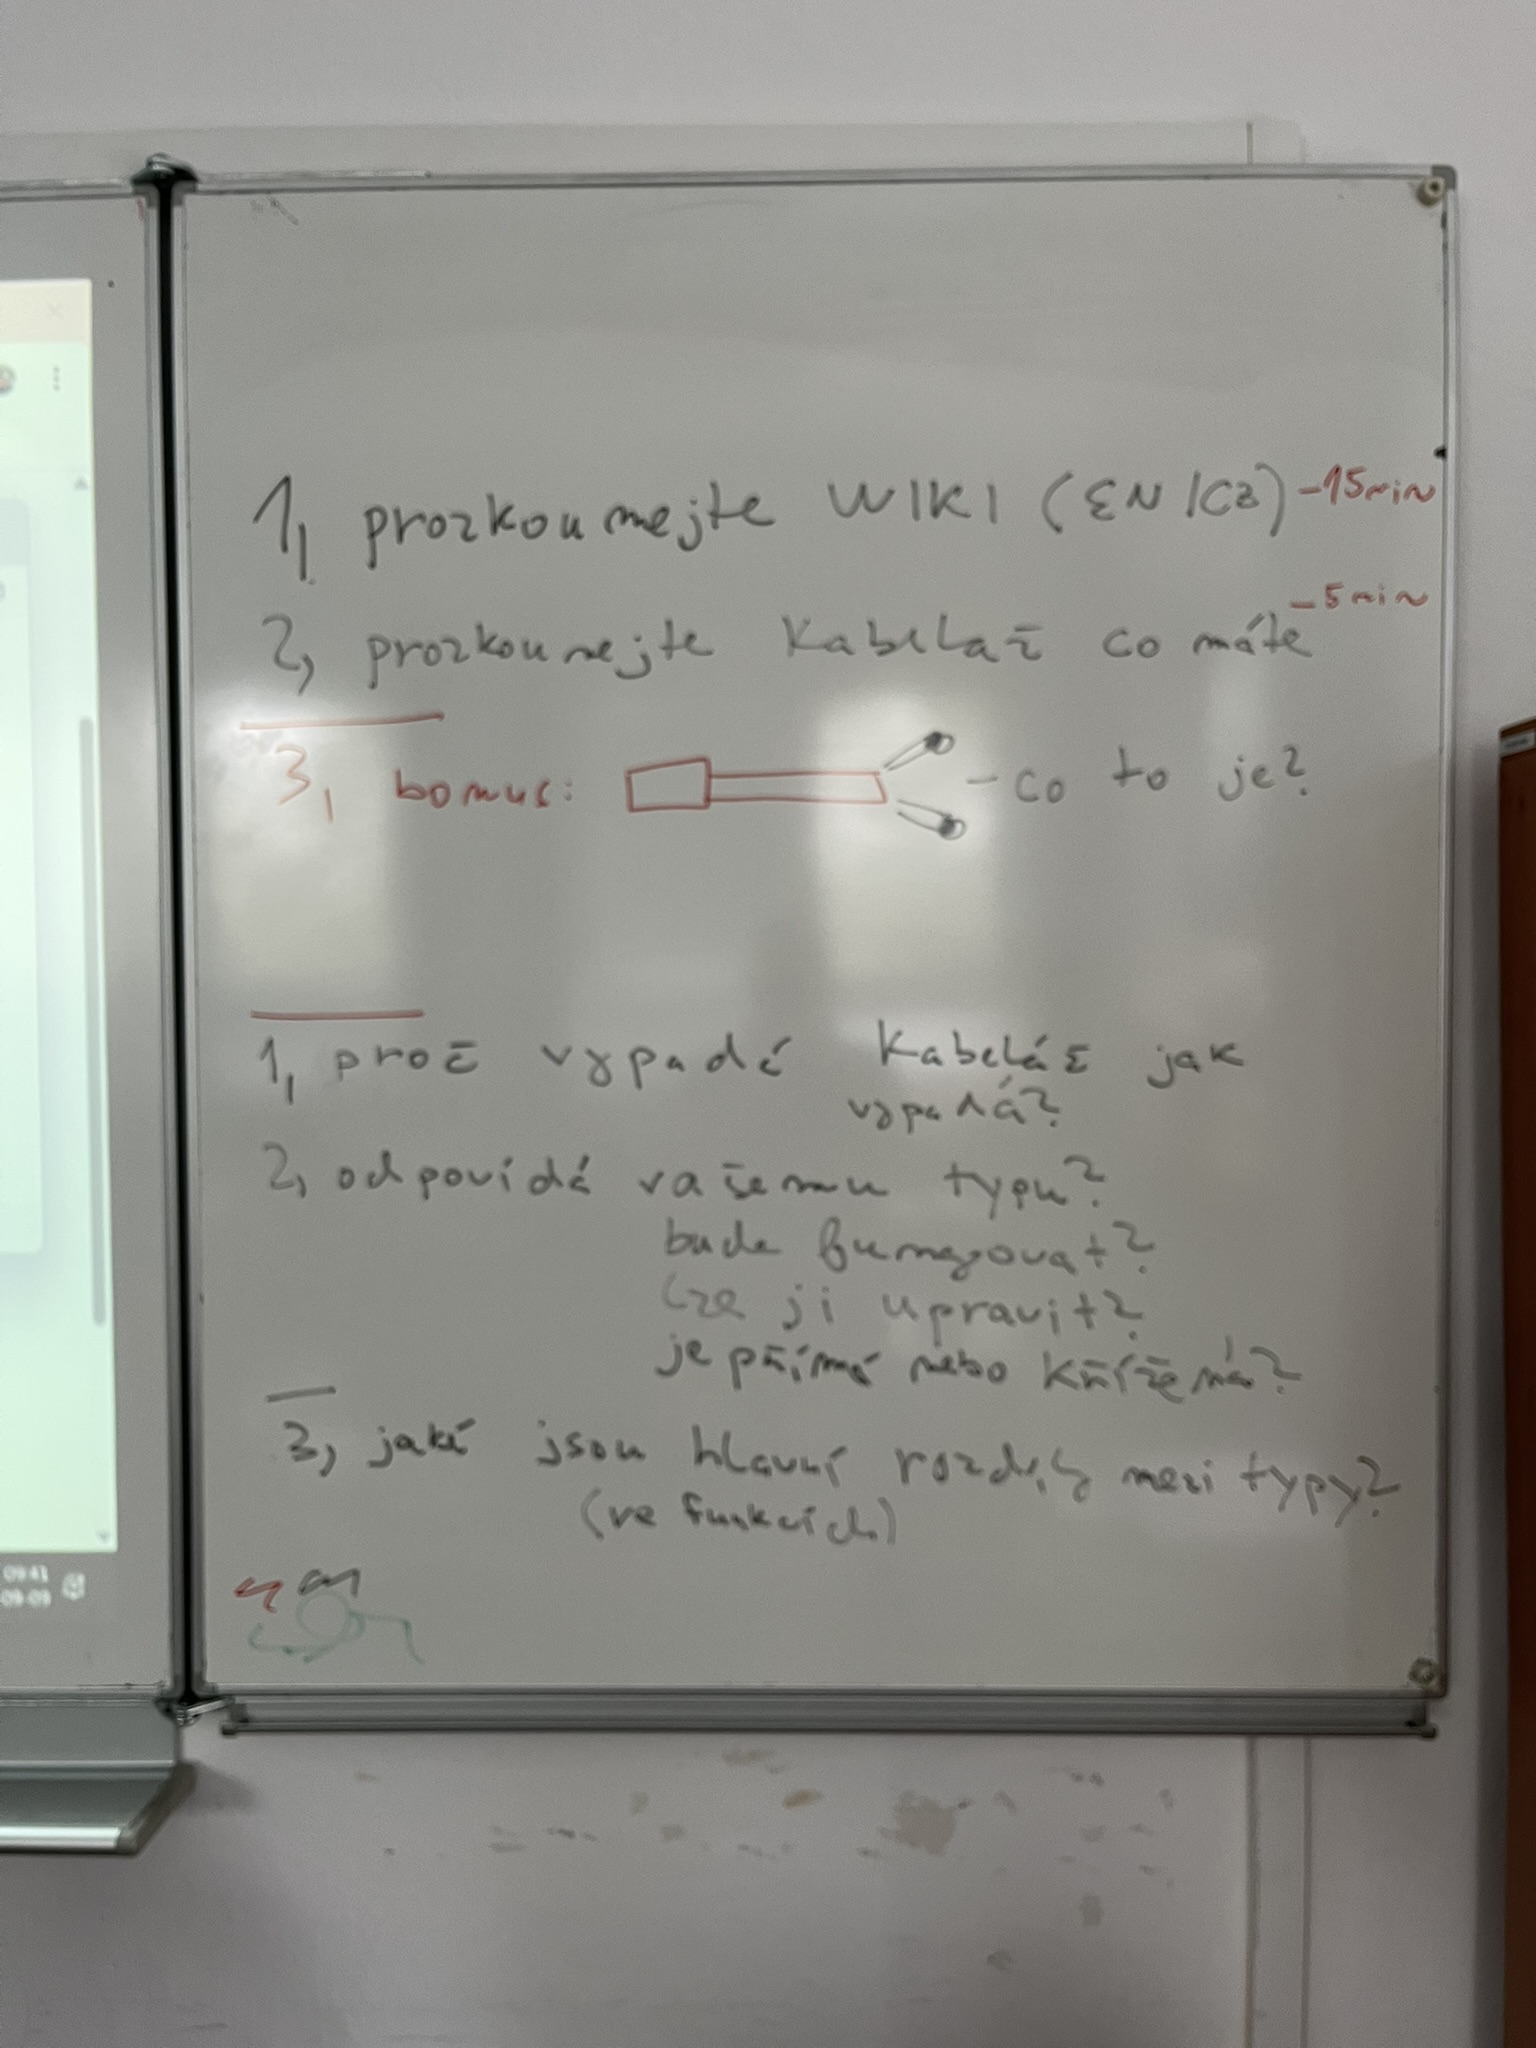 1, prozkoumejte WIKI (EN/CZ) -15min
2, prozkoumejte kabeláž co máte -5min
3, bonus: - co to je?
1, proč vypadá kabeláž jak
vypadá?
2, odpovídá vašemu typu?
bude fungovat?
lze ji upravit?
je přímá nebo křížená?
3, jaké jsou hlavní rozdíly mezi typy?
(ve funkcích)
09:41
09-09